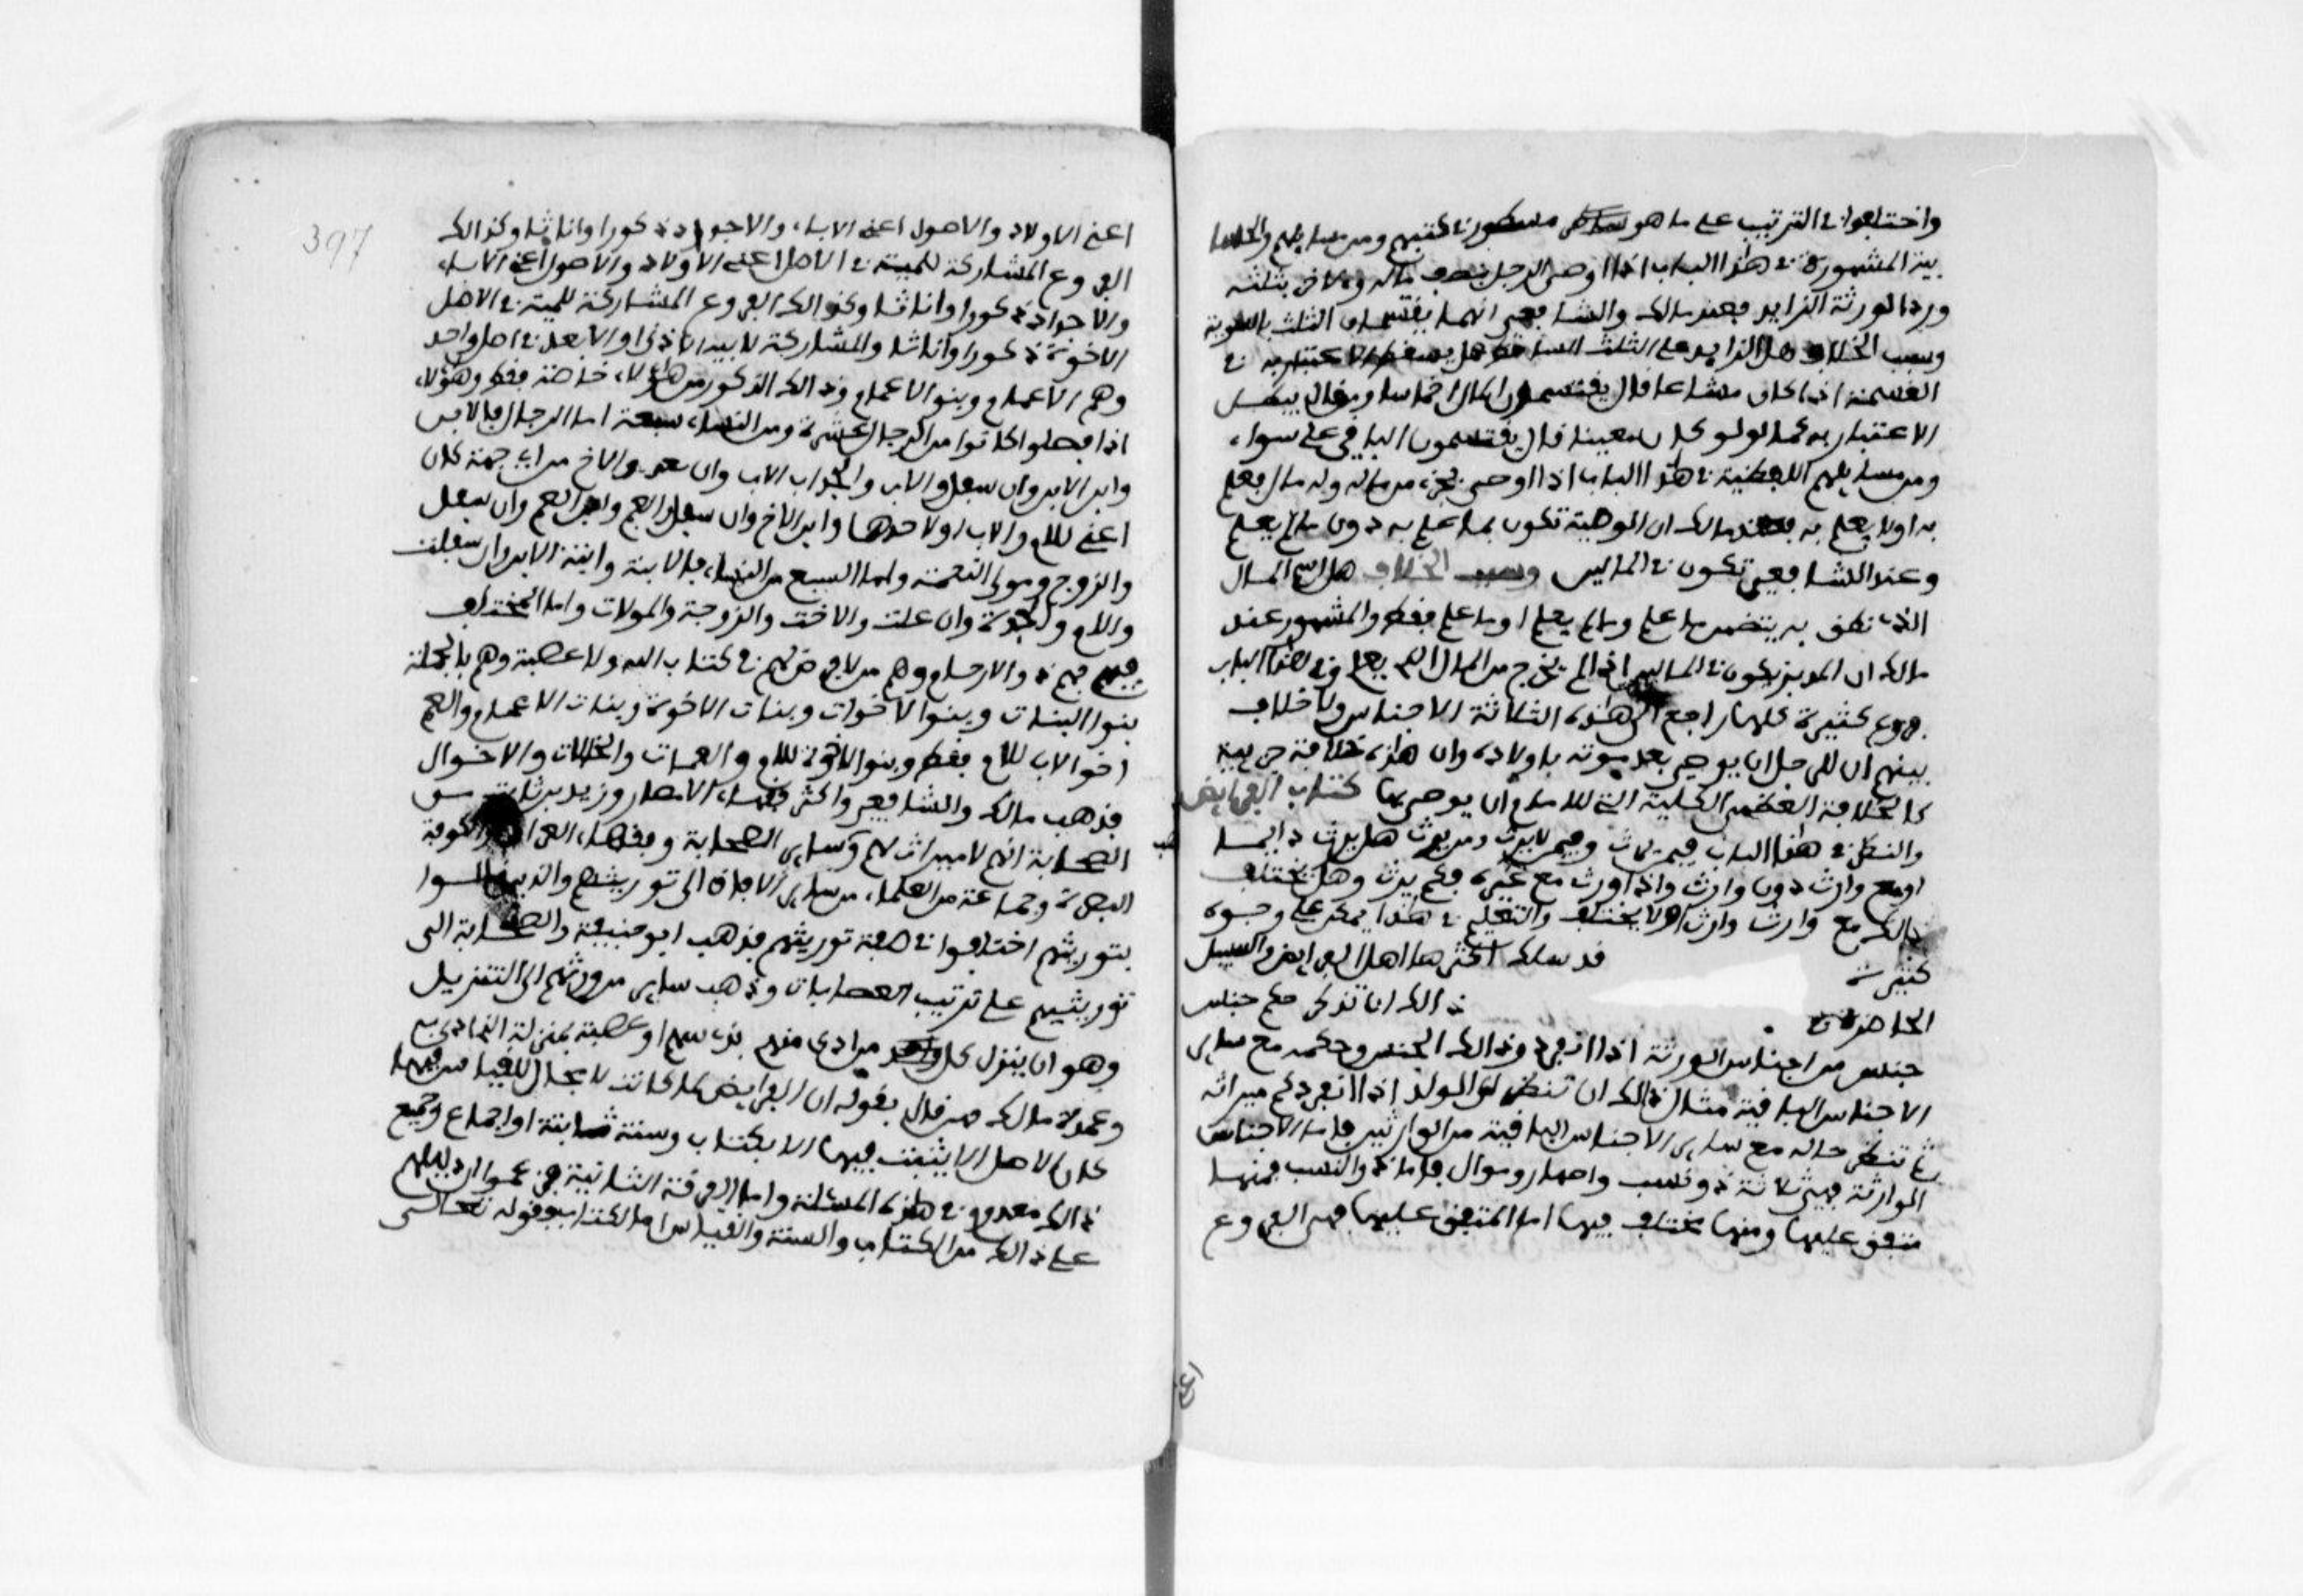 واختلفوا في الترتيب على ما هو مسطور في كتبهم ومن مسايلهم
بين المشهورة في هذا الباب اذا اوصى الرجل بنصف ماله ولاخر بثلثه
ورد الورثة الزايد فعند مالك والشافعي انهما يقتسمان الثلث بالسوية
وسبب الخلاف هل الزايد على الثلث الساقط هل يسقط الاعتبار به في
القسمة اذا كان مشاعا قال يقتسمون المال اخماسا ومن قال يبطل
الاعتبار به كما لو كان معينا قال يقتسمون الباقي على سواء
ومن مسايلهم اللفظية في هذا الباب اذا اوصى بجزء من ماله وله مال يعلم
به او لا يعلم به فعند مالك ان الوصية تكون بما علم به دون ما لم يعلم
وعند الشافعي تكون في المالين وسبب الخلاف هل اسم المال
الذي نطق به يتضمن ما علم وما لم يعلم او ما علم فقط والمشهور عند
مالك ان المدبر يكون في المالين اذا لم يخرج من المال الذي يعلم وفي هذا الباب
فروع كثيرة كلها راجع الى هذه الثلاثة الاجناس ولا خلاف
بينهم ان للرجل ان يوصي بعد موته باولاده وان هذه خلافة جزيية
كالخلافة العظمى الكلية التي للامام ان يوصي بها كتاب الفرايض
والنظر في هذا الباب فيمن يرث وفيمن لا يرث ومن يرث هل يرث دايما
او مع وارث دون وارث واذا ورث مع غيره فكم يرث وهل يختلف
ذالك مع وارث وارث او لا يختلف والتعليم في هذا يمكن على وجوه
كثيرة قد سلك اكثرها اهل الفرايض والسبيل
الحاضرة في ذالك ان تذكر حكم جنس
جنس من اجناس الورثة اذا انفرد ذالك الجنس وحكمه مع ساير
الاجناس الباقية مثال ذالك ان تنظر الى الولد اذا انفرد كم ميراثه
ثم تنظر حاله مع ساير الاجناس الباقية من الوارثين فاما الاجناس
الوارثة فهي ثلاثة ذو نسب واصهار وموال فاما ذو النسب فمنها
متفق عليها ومنها مختلف فيها اما المتفق عليها فهي الفروع
397
اعني الاولاد والاصول اعني الاباء والاجداد ذكورا واناثا وكذالك
الفروع المشاركة للميت في الاصل اعني الاولاد والاصول اعني الاباء
والاجداد ذكورا واناثا وكذالك الفروع المشاركة للميت في الاصل
الاخوة ذكورا واناثا والمشاركة لابيه الادنى او الابعد في اصل واحد
وهم الاعمام وبنو الاعمام وذالك الذكور من هؤلاء خاصة فقط وهؤلاء
اذا فصلوا كانوا من الرجال عشرة ومن النساء سبعة اما الرجال فالابن
وابن الابن وان سفل والاب والجد اب الاب وان بعد والاخ من اي جهة كان
اعني للام والاب او لاحدهما وابن الاخ وان سفل والعم وابن العم وان سفل
والزوج ومولى النعمة واما السبع من النساء فالابنة وابنة الابن وان سفلت
والام والجدة وان علت والاخت والزوجة والمولات واما المختلف
فيهم فهم ذوا الارحام وهم من لا فرض لهم في كتاب الله ولا عصبة وهم بالجملة
بنوا البنات وبنوا الاخوات وبنات الاخوة وبنات الاعمام والعم
اخو الاب للام فقط وبنوا الاخوة للام والعمات والخالات والاخوال
فذهب مالك والشافعي واكثر فقهاء الامصار وزيد بن ثابت من
الصحابة انهم لا ميراث لهم وساير الصحابة وفقهاء العراق والكوفة
البصرة وجماعة من العلماء من ساير الافاق الى توريثهم والذين قالوا
بتوريثهم اختلفوا في صفة توريثهم فذهب ابو حنيفة والصحابة الى
توريثهم على ترتيب العصابات وذهب ساير من ورثهم الى التنزيل
وهو ان ينزل كل واحد من ادلى منهم بذي سهم او عصبة بمنزلة الذي ادلى به
وعمدة مالك ومن قال بقوله ان الفرايض لما كانت لا مجال للقياس فيها
كان الاصل الا يثبت فيها الا بكتاب وسنة ثابتة او اجماع وجميع
ذالك معدوم في هذه المسئلة واما الفرقة الثانية فزعموا ان دليلهم
على ذالك من الكتاب والسنة والقياس اما الكتاب فقوله تعالى